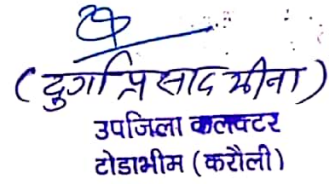 (दुर्गा प्रसाद मीना)
उपजिला कलक्टर
टोडाभीम (करौली)